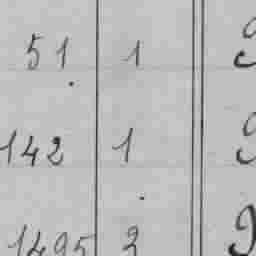 51. 1
142 1
1495 2